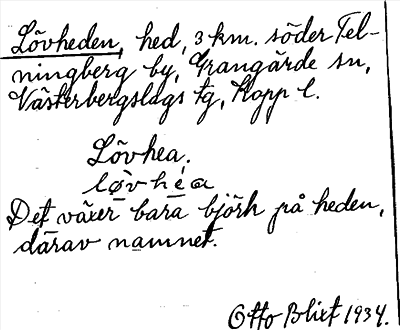 Lövheden, hed, 3 km. söder Tel-
ningberg by, Grangärde sn,
Västerbergslags tg, Kopp l.
Lövhea.
løvhéa
Det växer bara björk på heden,
därav namnet.
Otto Blixt 1934.